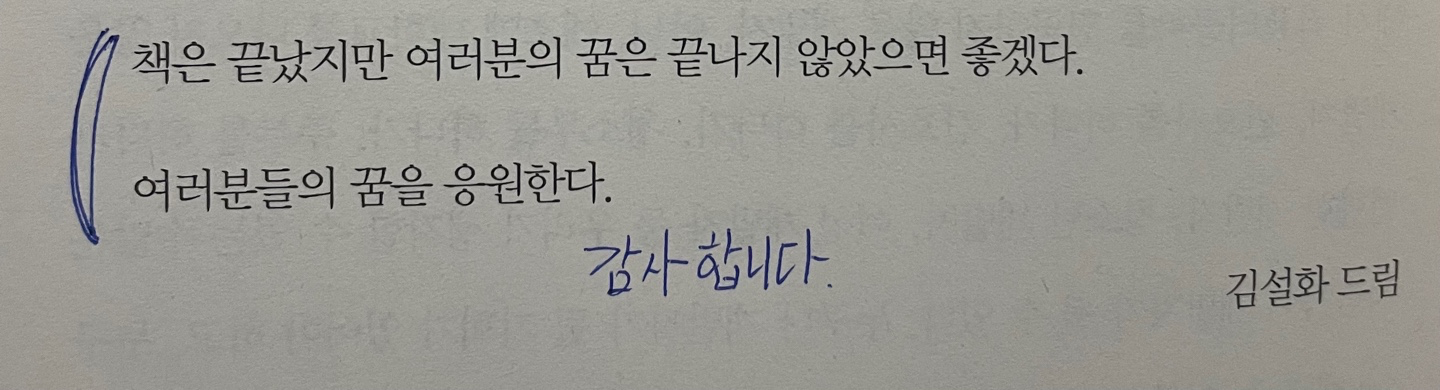 책은 끝났지만 여러분의 꿈은 끝나지 않았으면 좋겠다.
여러분들의 꿈을 응원한다.
감사합니다.
김설화 드림